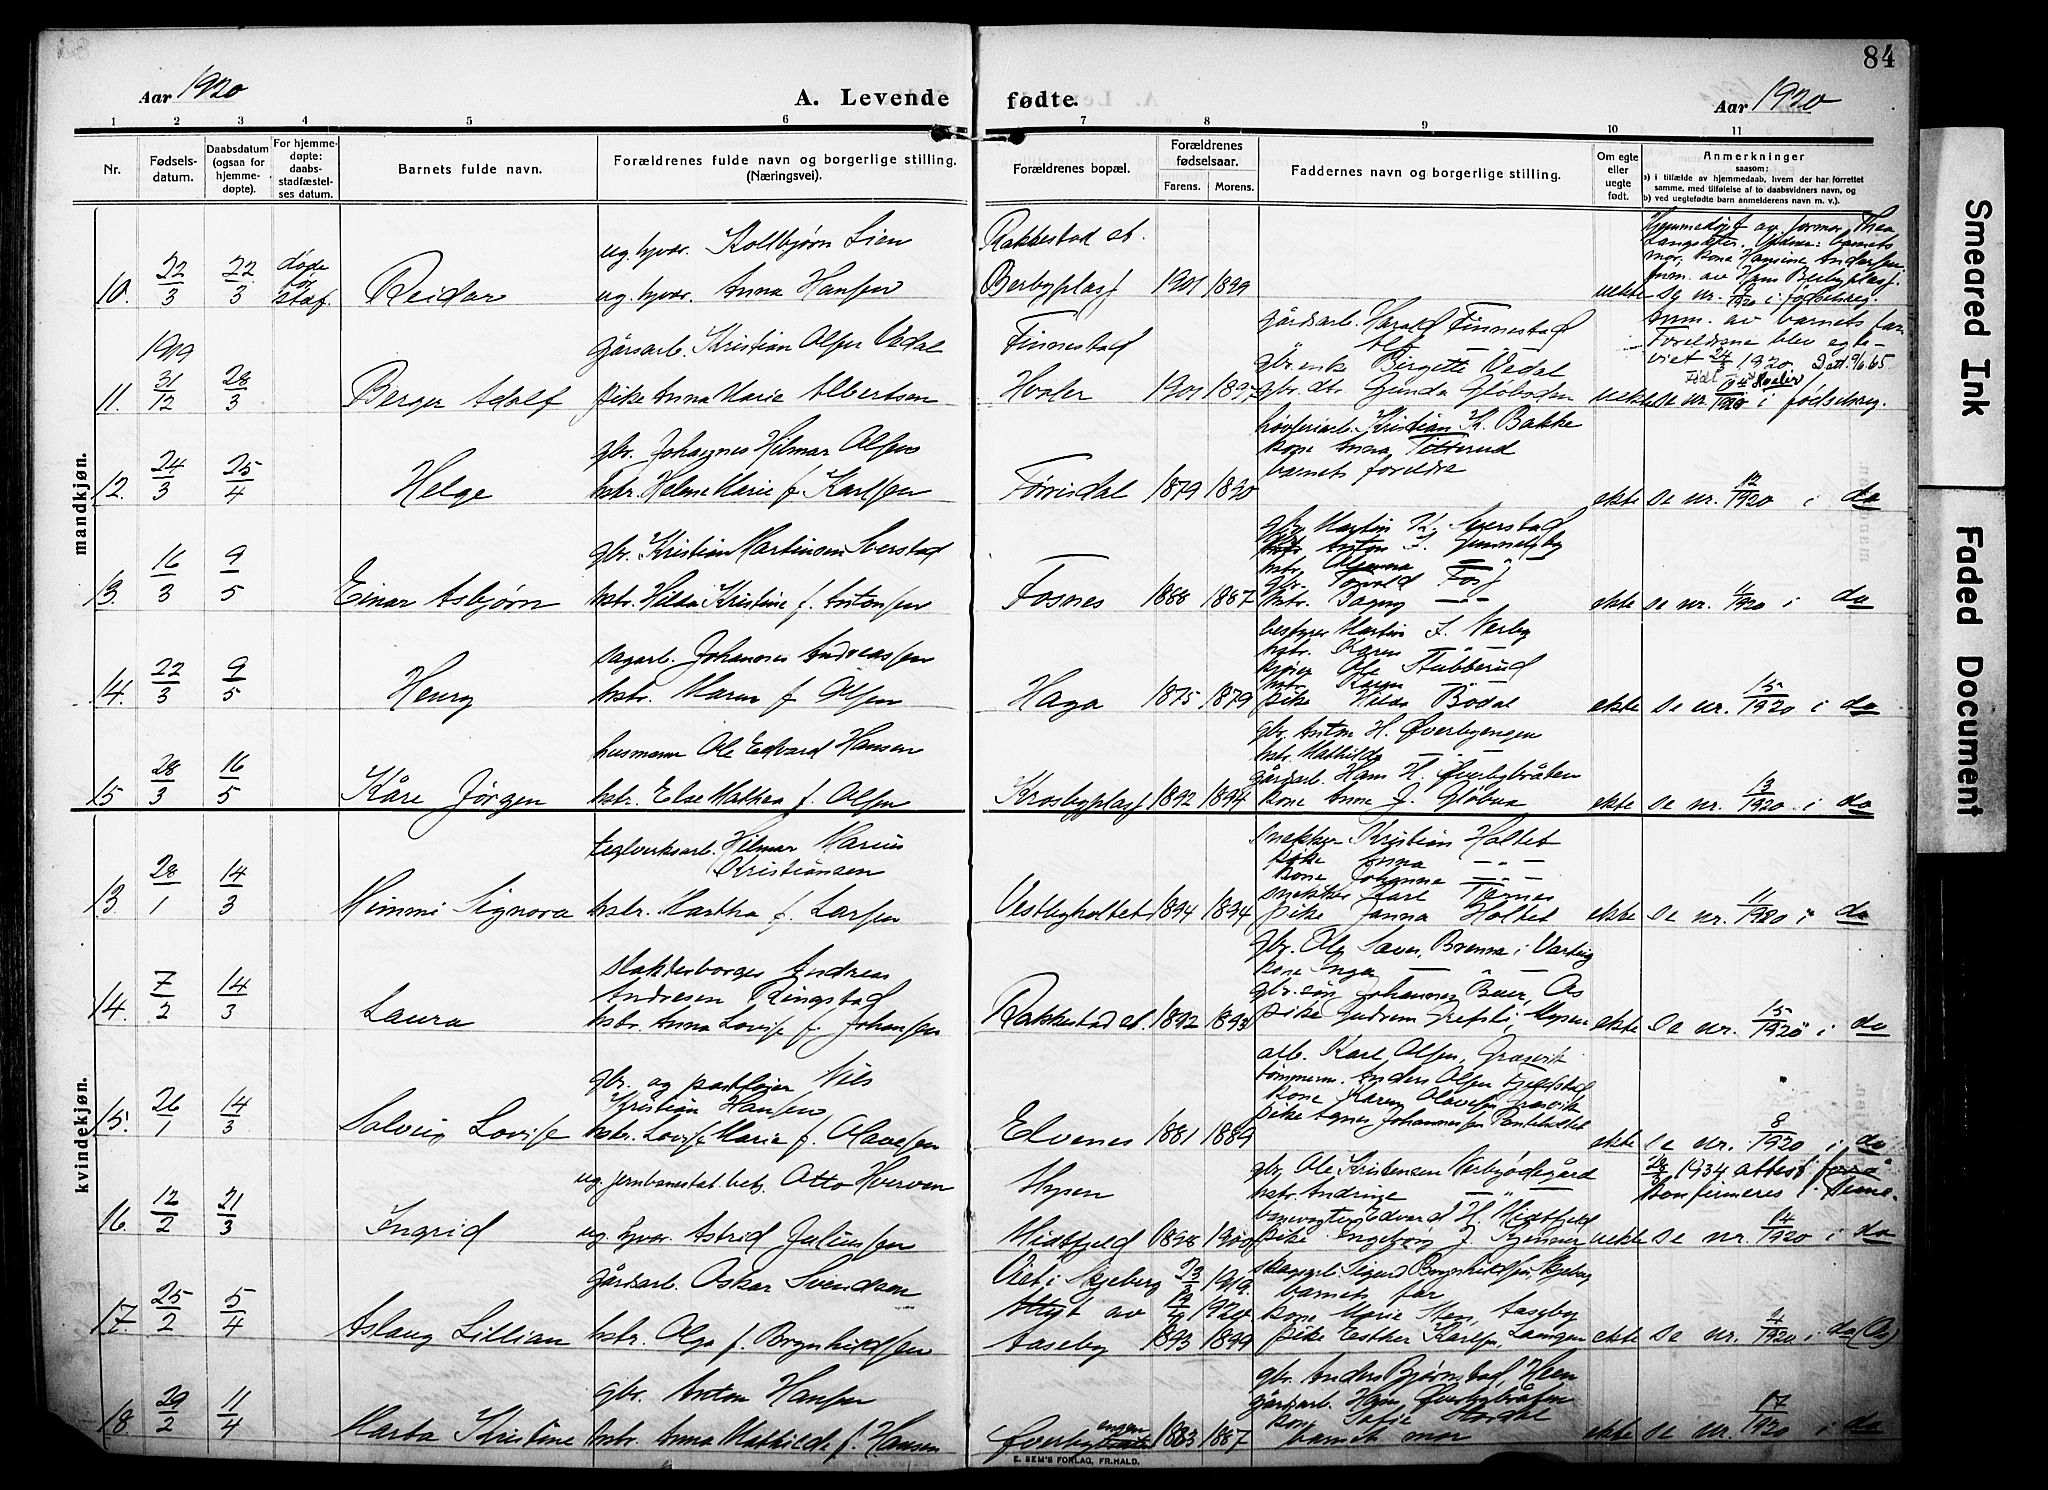 84
Aar 1920
A. Levende fødte.
Aar 1920
1 2 3 4 5 6 7 8 9 10 11
Nr.
Fødsels-
datum.
Daabsdatum
(ogsaa for
hjemme-
døpte).
For hjemme-
døpte:
daabs-
stadfæstel-
ses datum.
Barnets fulde navn.
Forældrenes fulde navn og borgerlige stilling.
(Næringsvei).
Forældrenes bopæl.
Forældrenes
fødselsaar.
Farens. Morens.
Faddernes navn og borgerlige stilling.
Om egte
eller
uegte
født.
Anmerkninger
saasom:
a) i tilfælde av hjemmedaab, hvem der har forrettet
samme, med tilføielse af to daabsvidners navn, og
b) ved uegtefødte barn anmelderens navn m. v.).
mandkjøn.
10. 22/3 22/3 døde før staf.
Reidar
ug. hjvr. Kolbjørn Lien
ug. hjvr. Anna Hansen
Rakkestad st.
Berbyplass 1901 1899
uekte
Hjemmedøpt av formor Thea
mor, kona Hansine Andersen
Anm. av Hans Berbyplass.
Se nr. 1920 i fødselsreg.
11. 1919 31/12 28/3
Berger Adolf
gårdsarb. Kristian Olsen Vedal
pike Anna Marie Albertsen
Finnestad
Hvaler 1901 1897
gårdsarb. Harald Finnestad
gbr. enke Birgette Vedal
gbr. dt. Gunda
uekte
Anm. av barnets far
Foreldrene blev egte-
viet 24/3 1920 Datt. 9/6.65
Født Hvaler
se nr. 1920 i fødselsreg.
12. 24/3 25/4
Helge
gbr. Johannes Hilmar Olsen
hstr. Helene Marie f. Karlsen
Tørrisdal 1879 1890
Kristian K. Bakke
kone Anna Titterud
barnets foreldre
ekte se nr. 12/1920 i do
13. 16/3 9/5
Einar Asbjørn
gbr. Kristian Martinsen Sverstad
hstr. Hilda Kristine f. Antonsen
Fosnes 1888 1887
gbr. Martin K. Sverstad
Anton J.
gbr. Torvald Foss
hstr. Dagny — " —
ekte se nr. 1920 i do
14. 22/3 9/5
Henry
sagarb. Johannes Andreassen
hstr. Maren f. Olsen
Haga 1875 1879
bestyrer Martin J. Nerby
hstr. Karen — " —
Ole Stubberud
hstr. Karen
pike Hilda Bødal
ekte se nr. 15/1920 i do
15 28/3 16/5
Kåre Jørgen
husmann Ole Edvard Hansen
hstr. Else Mathea f. Olsen
Krosbyplass 1892 1894
gbr. Anton H. Øverbyengen
hstr. Mathilde — " —
gårdsarb. Hans H. Øverbybråten
kone Anna J.
ekte se nr. 13/1920 i do
kvindekjøn.
13. 28/1 14/3
Mimmi Signora
teglverksarb. Hilmar Marius
Kristiansen
hstr. Martha f. Larsen
Vestbyholtet 1894 1894
snekker Kristian Holtet
pike Anna — " —
kone Johanna — " —
snekker Karl Tjernes
pike Janna Holtet
ekte se nr. 11/1920 i do
14. 7/2 14/3
Laura
slakterborger Andreas
Andresen Ringstad
hstr. Anna Lovise f. Johansen
Rakkestad st. 1892 1893
gbr. Ole Brenna i Varteig
kone Inga — " —
gbr. søn Johannes Buer, Os
pike Gudrun Grefsli, Mysen
ekte se nr. 15/1920 i do
15. 26/1 14/3
Solveig Lovise
gbr. og postfører Nils
Kristian Hansen
hstr. Lovise Marie f. Olavesen
Elvenes 1881 1889
arb. Karl Olsen, Græsvik
tømmerm. Anders Olsen Fjeldstad
kone Karen Olavesen Græsvik
pike Agnes Johannessen
ekte se nr. 8/1920 i do
16. 12/2 21/3
Ingrid
ug. jernbanestat. betj. Otto Hverven
ug. hjvr. Astrid Juliussen
Mysen
Midtfjeld 1898 1900
gbr. Ole Kristensen Nerbyødegård
hstr. Andrine — " —
banevogter Edvard H. Midtfjeld
pike Ingeborg J. Kjenner
uekte
28/3 1934 attest for å
konfirmeres
se nr. 14/1920 i do
17. 25/2 5/4
Aslaug Lillian
gårdsarb. Oskar Svendsen
hstr. Olga f. Brynhildsen
Viet i Skjeberg 23/3 1919.
Utlyst av
Aaseby 1893 1899
Sigurd Brynhildsen, Skjeberg
barnets far
kone Marie Aaseby
pike Esther Karlsen,
ekte se nr. 4/1920 i do (Os)
18. 29/2 11/4
Marta Kristine
gbr. Anton Hansen
hstr. Anna Mathilde f. Hansen
Øverbyengen 1883 1887
gbr. Anders Bjørnstad, Heen
gårdsarb. Hans Øverbybråten
kone Sofie
barnets mor
ekte se nr. 17/1920 i do
E. SEM'S FORLAG, FR.HALD.
Smeared Ink
Faded Document